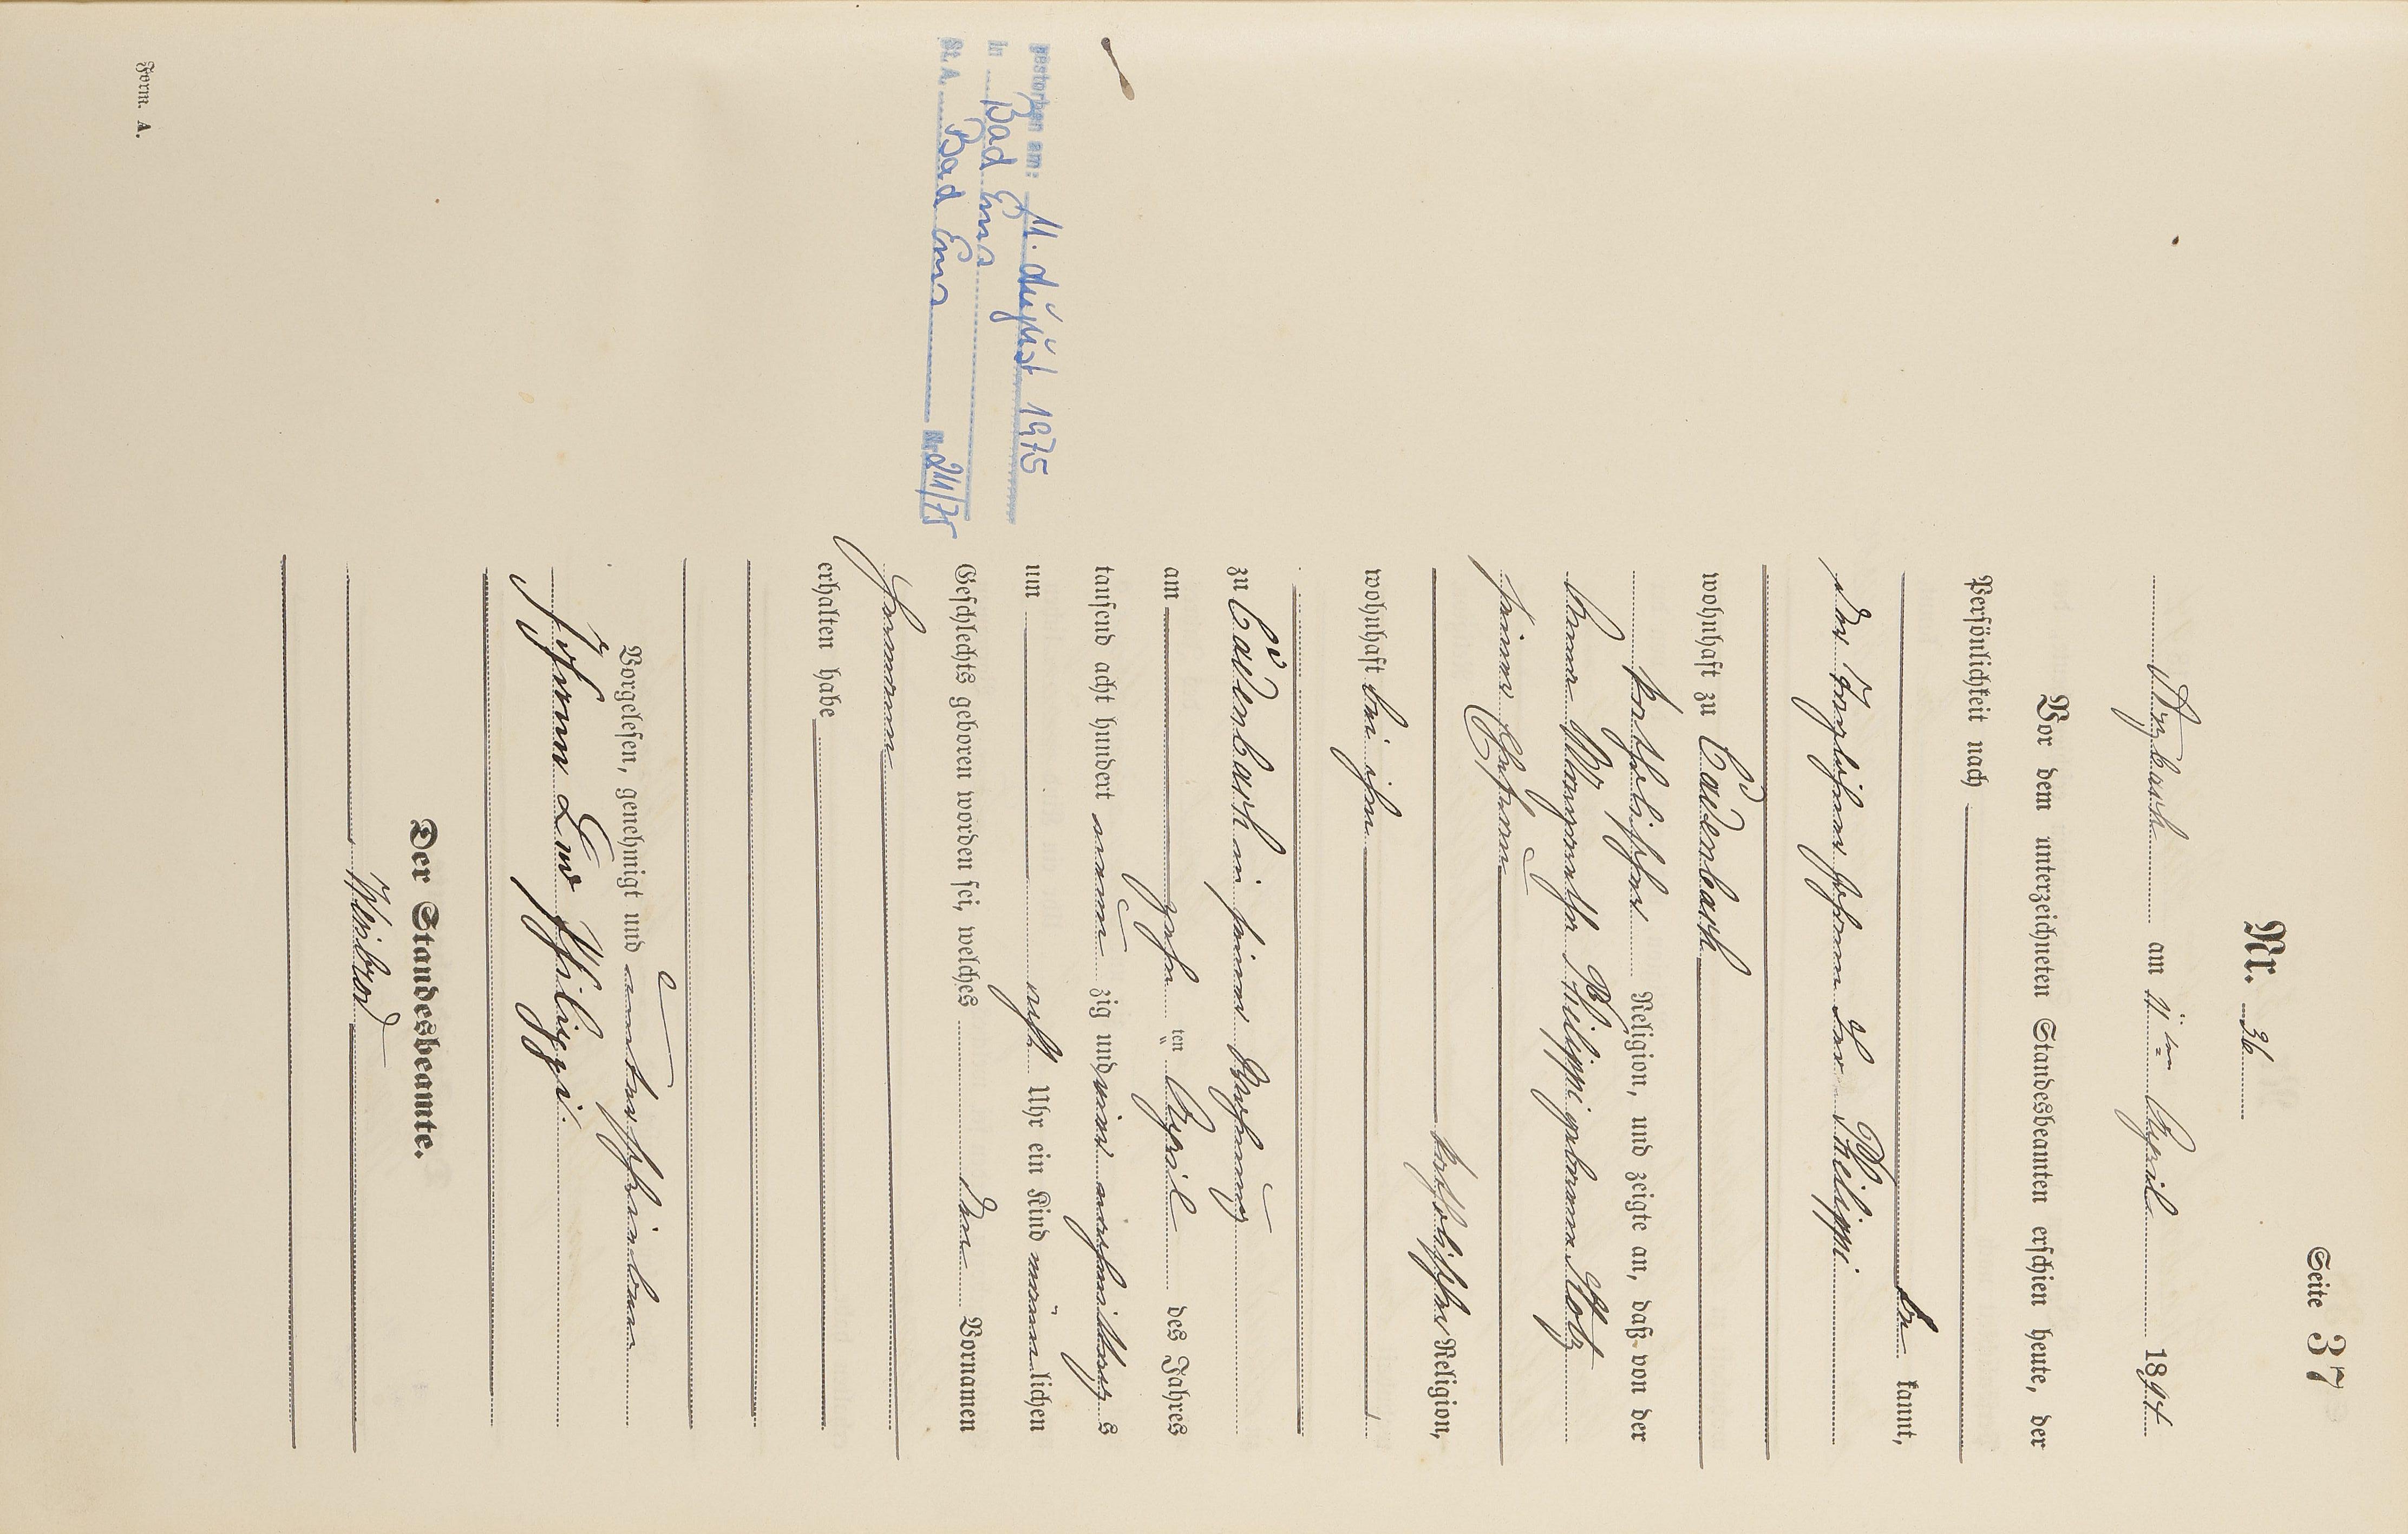 Seite 37
Nr. 36
Arzbach am 11ten April 1894
Vor dem unterzeichneten Standesbeamten erschien heute, der
Persönlichkeit nach
be kannt,
der Taglöhner Johann Philippi
wohnhaft zu Cadenbach
katholischer Religion, und zeigte an, daß von der
Anna Margaretha Philippi geborenen
seiner Ehefrau
katholischer Religion,
wohnhaft bei ihm
zu Cadenbach in seiner Wohnung
am zehn ten April des Jahres
tausend acht hundert neun zig und vier Nachmittags
um acht Uhr ein Kind männ lichen
Geschlechts geboren worden sei, welches den Vornamen
Johann
erhalten habe
Vorgelesen, genehmigt und unterschrieben
Johann Philippi
Der Standesbeamte.
gestorben am: 11. August 1975
in Bad Ems
St. A. Bad Ems Nr. 211/75
Form. A.